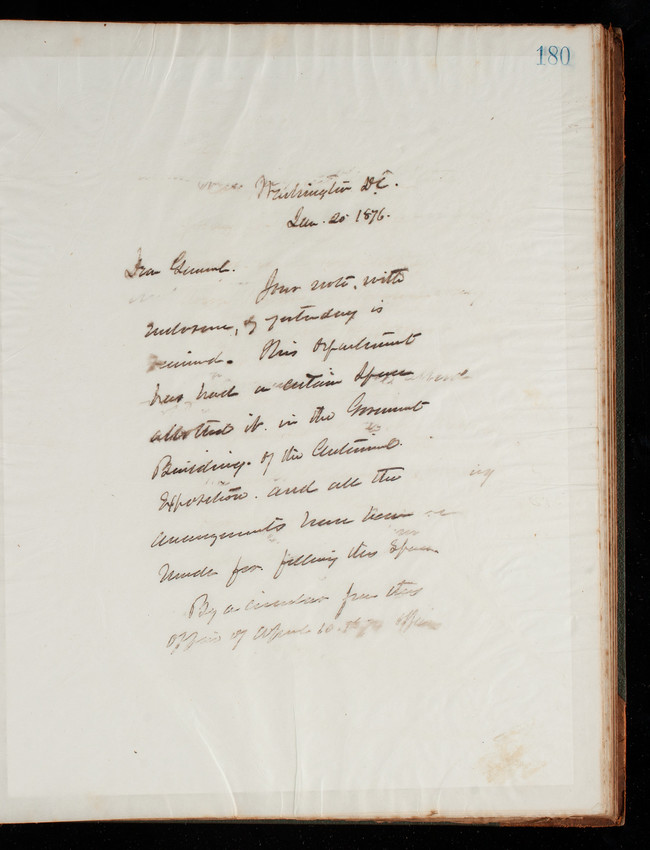 180
Washington D.C.
Jan. 20 1876.
Dear General.
Your note, with
enclosure, of yesterday is
received. This Department
has had a certain space
allotted it in the Government
Building of the Centennial
Exposition and all the
arrangements have been
made for filling this space
By a circular from this
Office of April 10